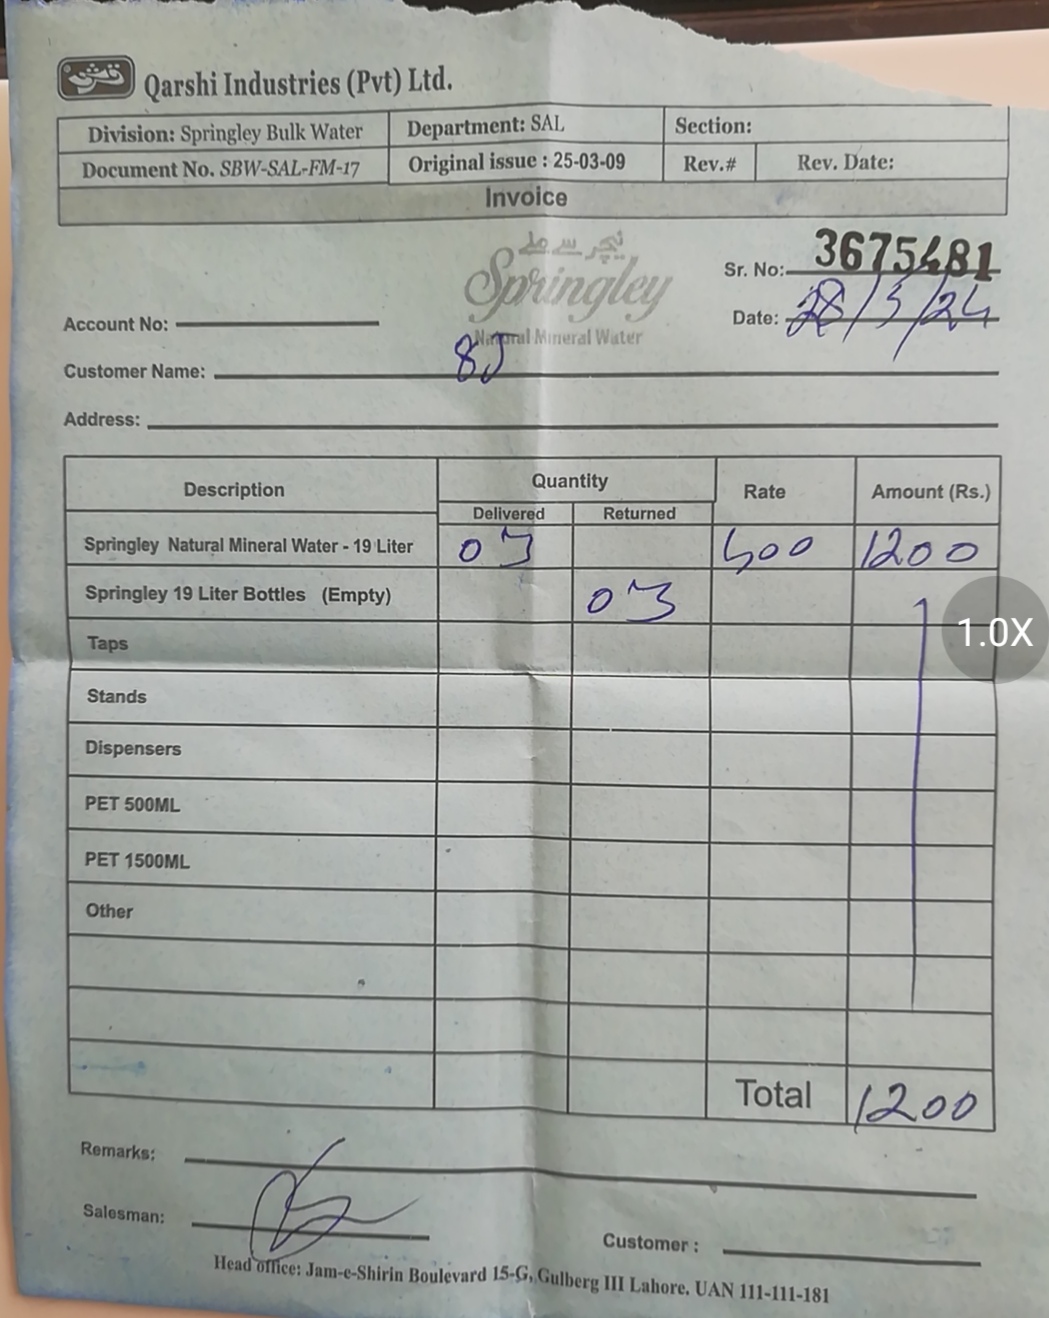 قرشی
Qarshi Industries (Pvt) Ltd.
Division: Springley Bulk Water Department: SAL Section:
Document No. SBW-SAL-FM-17 Original issue : 25-03-09 Rev.# Rev. Date:
Invoice
نیچر سے ملے
Springley
Natural Mineral Water
Sr. No: 3675481
Date: 28/3/24
Account No:
Customer Name: 85
Address:
Description Quantity Rate Amount (Rs.)
Delivered Returned
Springley Natural Mineral Water - 19 Liter 03 400 1200
Springley 19 Liter Bottles (Empty) 03
Taps
Stands
Dispensers
PET 500ML
PET 1500ML
Other
Total 1200
Remarks:
Salesman:
Customer :
Head office: Jam-e-Shirin Boulevard 15-G, Gulberg III Lahore. UAN 111-111-181
1.0X